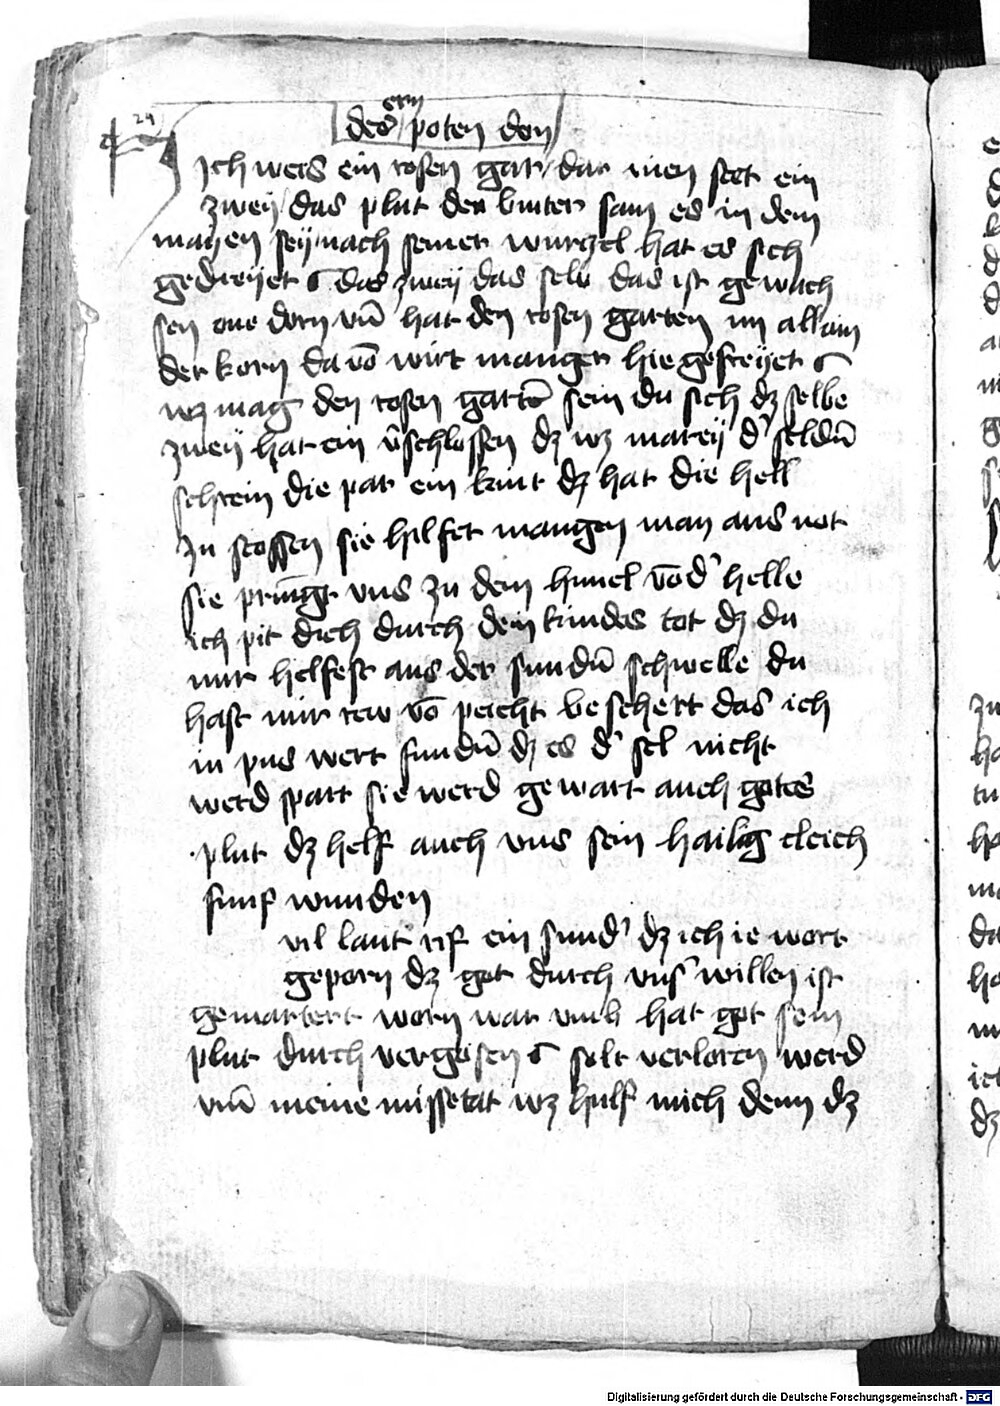 24
ern
des poten don
Ich weis ein rosen gart dar inen stet ein
zweÿ das plut den winter sam es in dem
mayen seÿ nach seiner wurczel hat es sich
gedreÿet das zweÿ das selb das ist gewach
sen one dorn vn̄ hat den rosen garten im allain
der korn da vō wirt manger hie gefreÿet
wz mag den rosen gartē sein du sich dz selbe
zweÿ hat ein v̄schlossen dz wz mareÿ d' seldn̄
schrein die par ein kint dz hat die hell
zu stossen sie hilfet mangen man aus not
sie pringt vns zu dem himel vō d' helle
ich pit dich durch dein kindes tot dz du
mir helfest aus der sundn̄ schwelle du
hast mir rew vō peicht beschert das ich
in pus wert fundn̄ dz es d' sel nicht
werd spart sie werd gewart auch gotes
plut dz helf auch vns sein hailig cleich
funf wunden
vil laut rif ein sund' dz ich ie wort
geporn dz got durch vns' willen ist
gemartert worn war vmb hat got sein
plut durch vergosen solt verloren werd
vm̄ meine missetat wz hulf mich denn dz
Digitalisierung gefördert durch die Deutsche Forschungsgemeinschaft - DFG